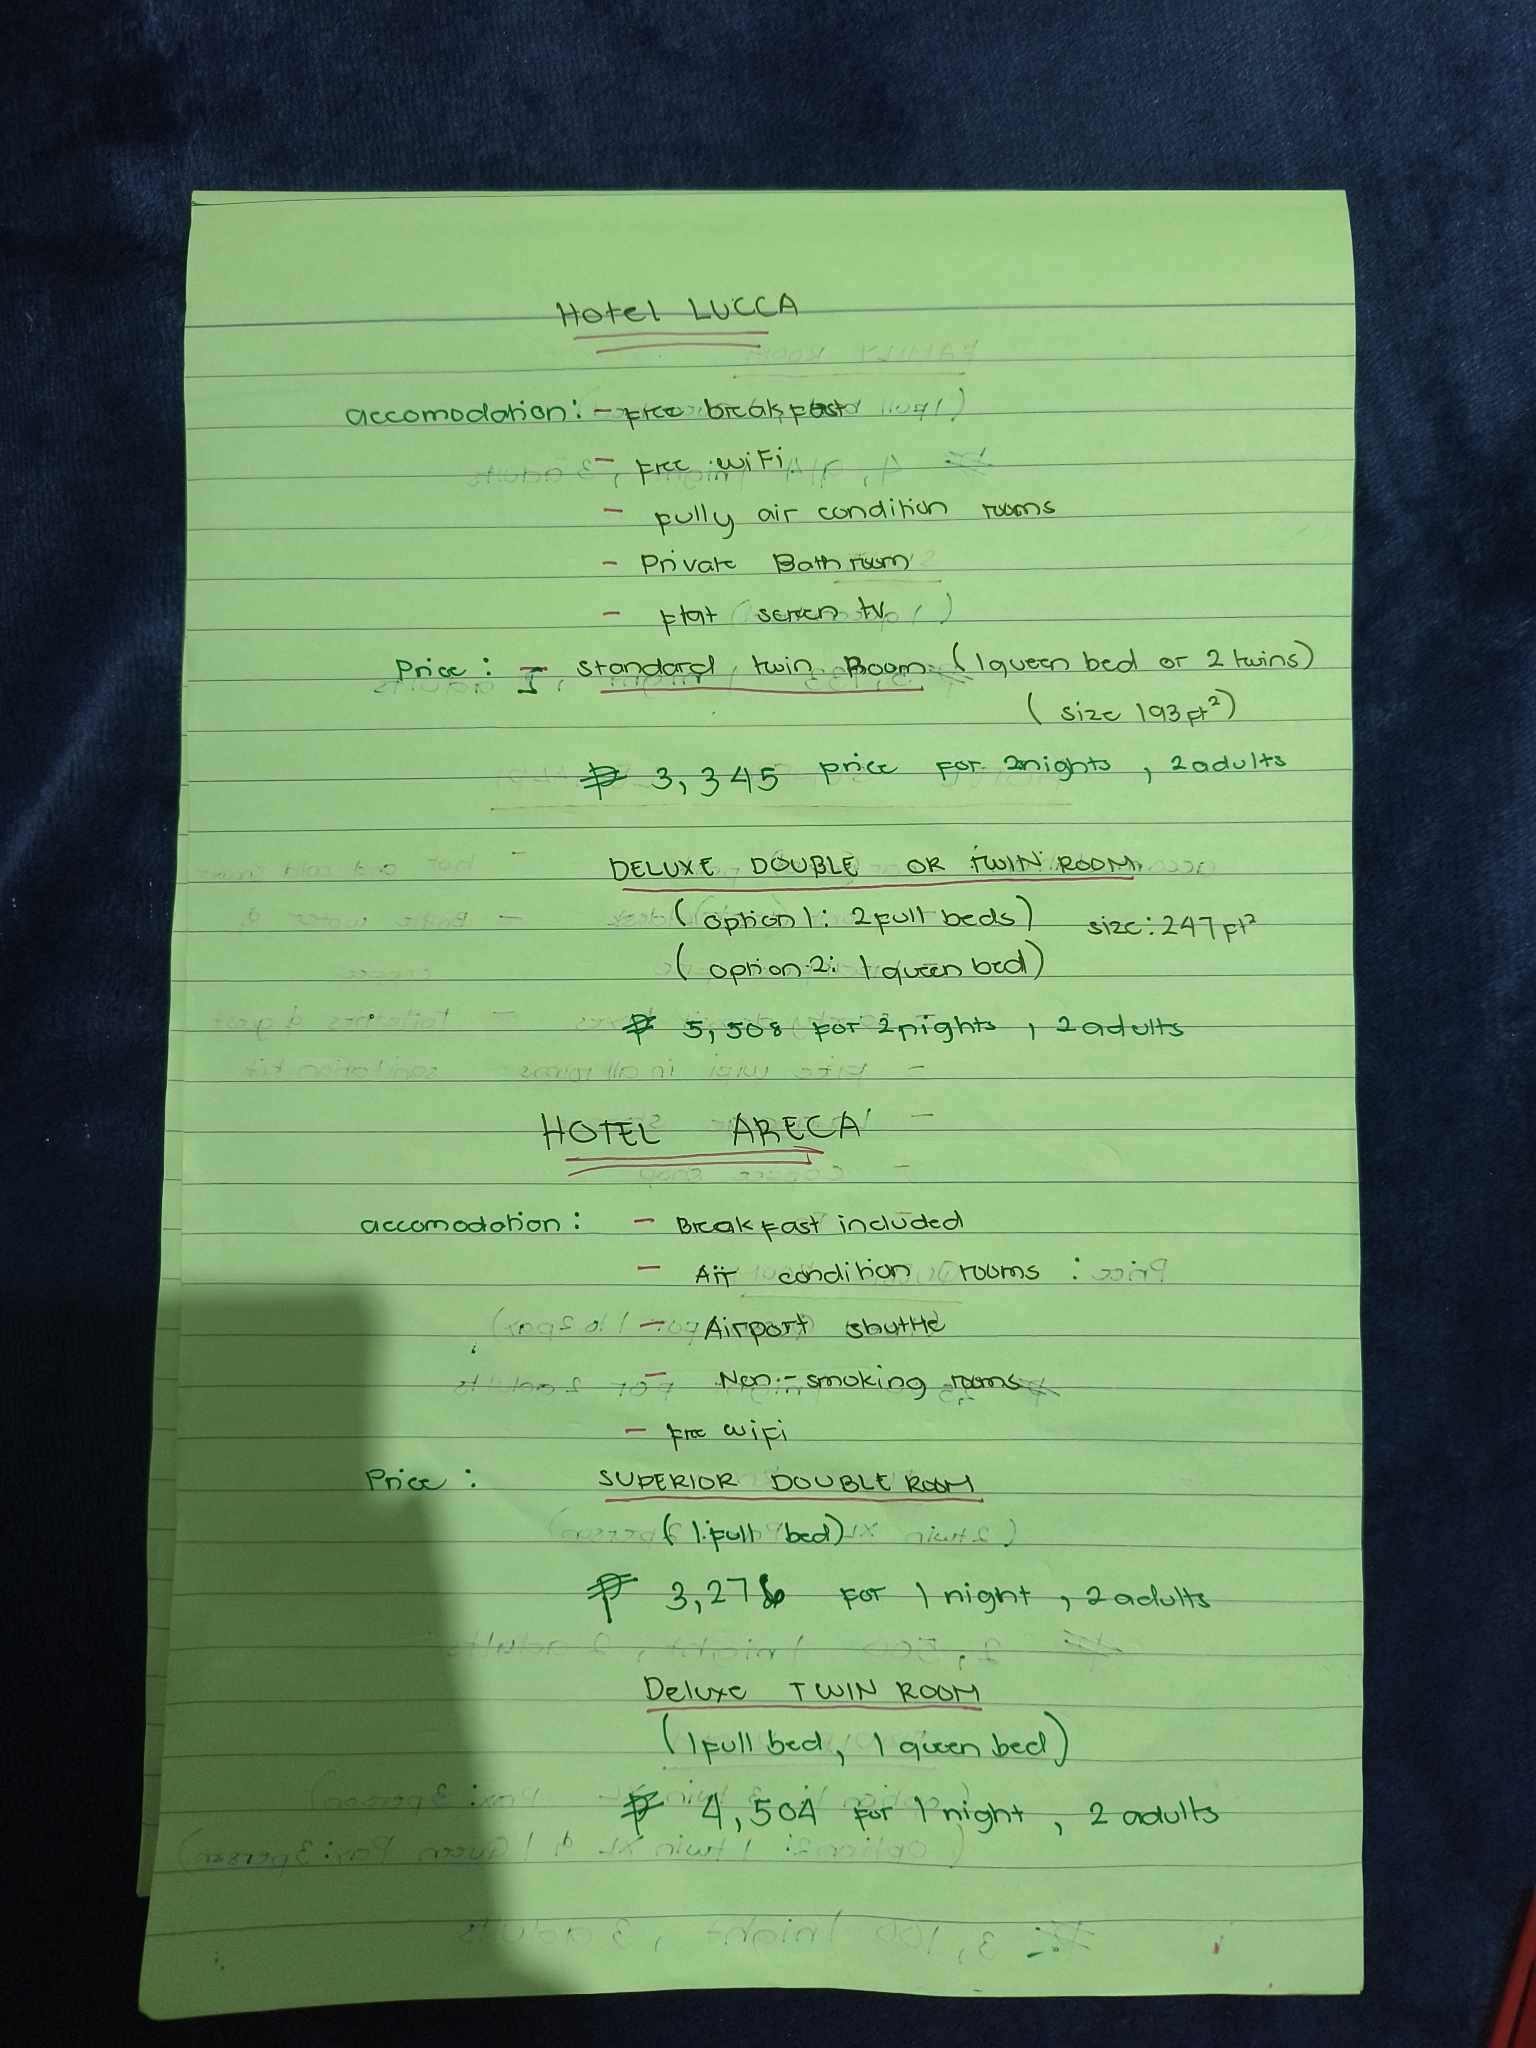 Hotel LUCCA
accomodation: - free breakfast
- free wifi
- fully air condition rooms
- Private Bathroom
- flat screen tv
Price: - standard twin Room (1queen bed or 2 twins)
(size 193ft²)
₱ 3,345 price for 2nights, 2adults
DELUXE DOUBLE OR TWIN ROOM
(option 1: 2full beds) size: 247ft²
(option 2: 1 queen bed)
₱ 5,508 for 2nights, 2adults
HOTEL ARECA
accomodation: - Breakfast included
- Air condition rooms
- Airport shuttle
- Non-smoking rooms
- free wifi
Price: SUPERIOR DOUBLE ROOM
(1 full bed)
₱ 3,276 for 1 night, 2adults
Deluxe TWIN ROOM
(1full bed, 1 queen bed)
₱ 4,504 for 1 night, 2 adults